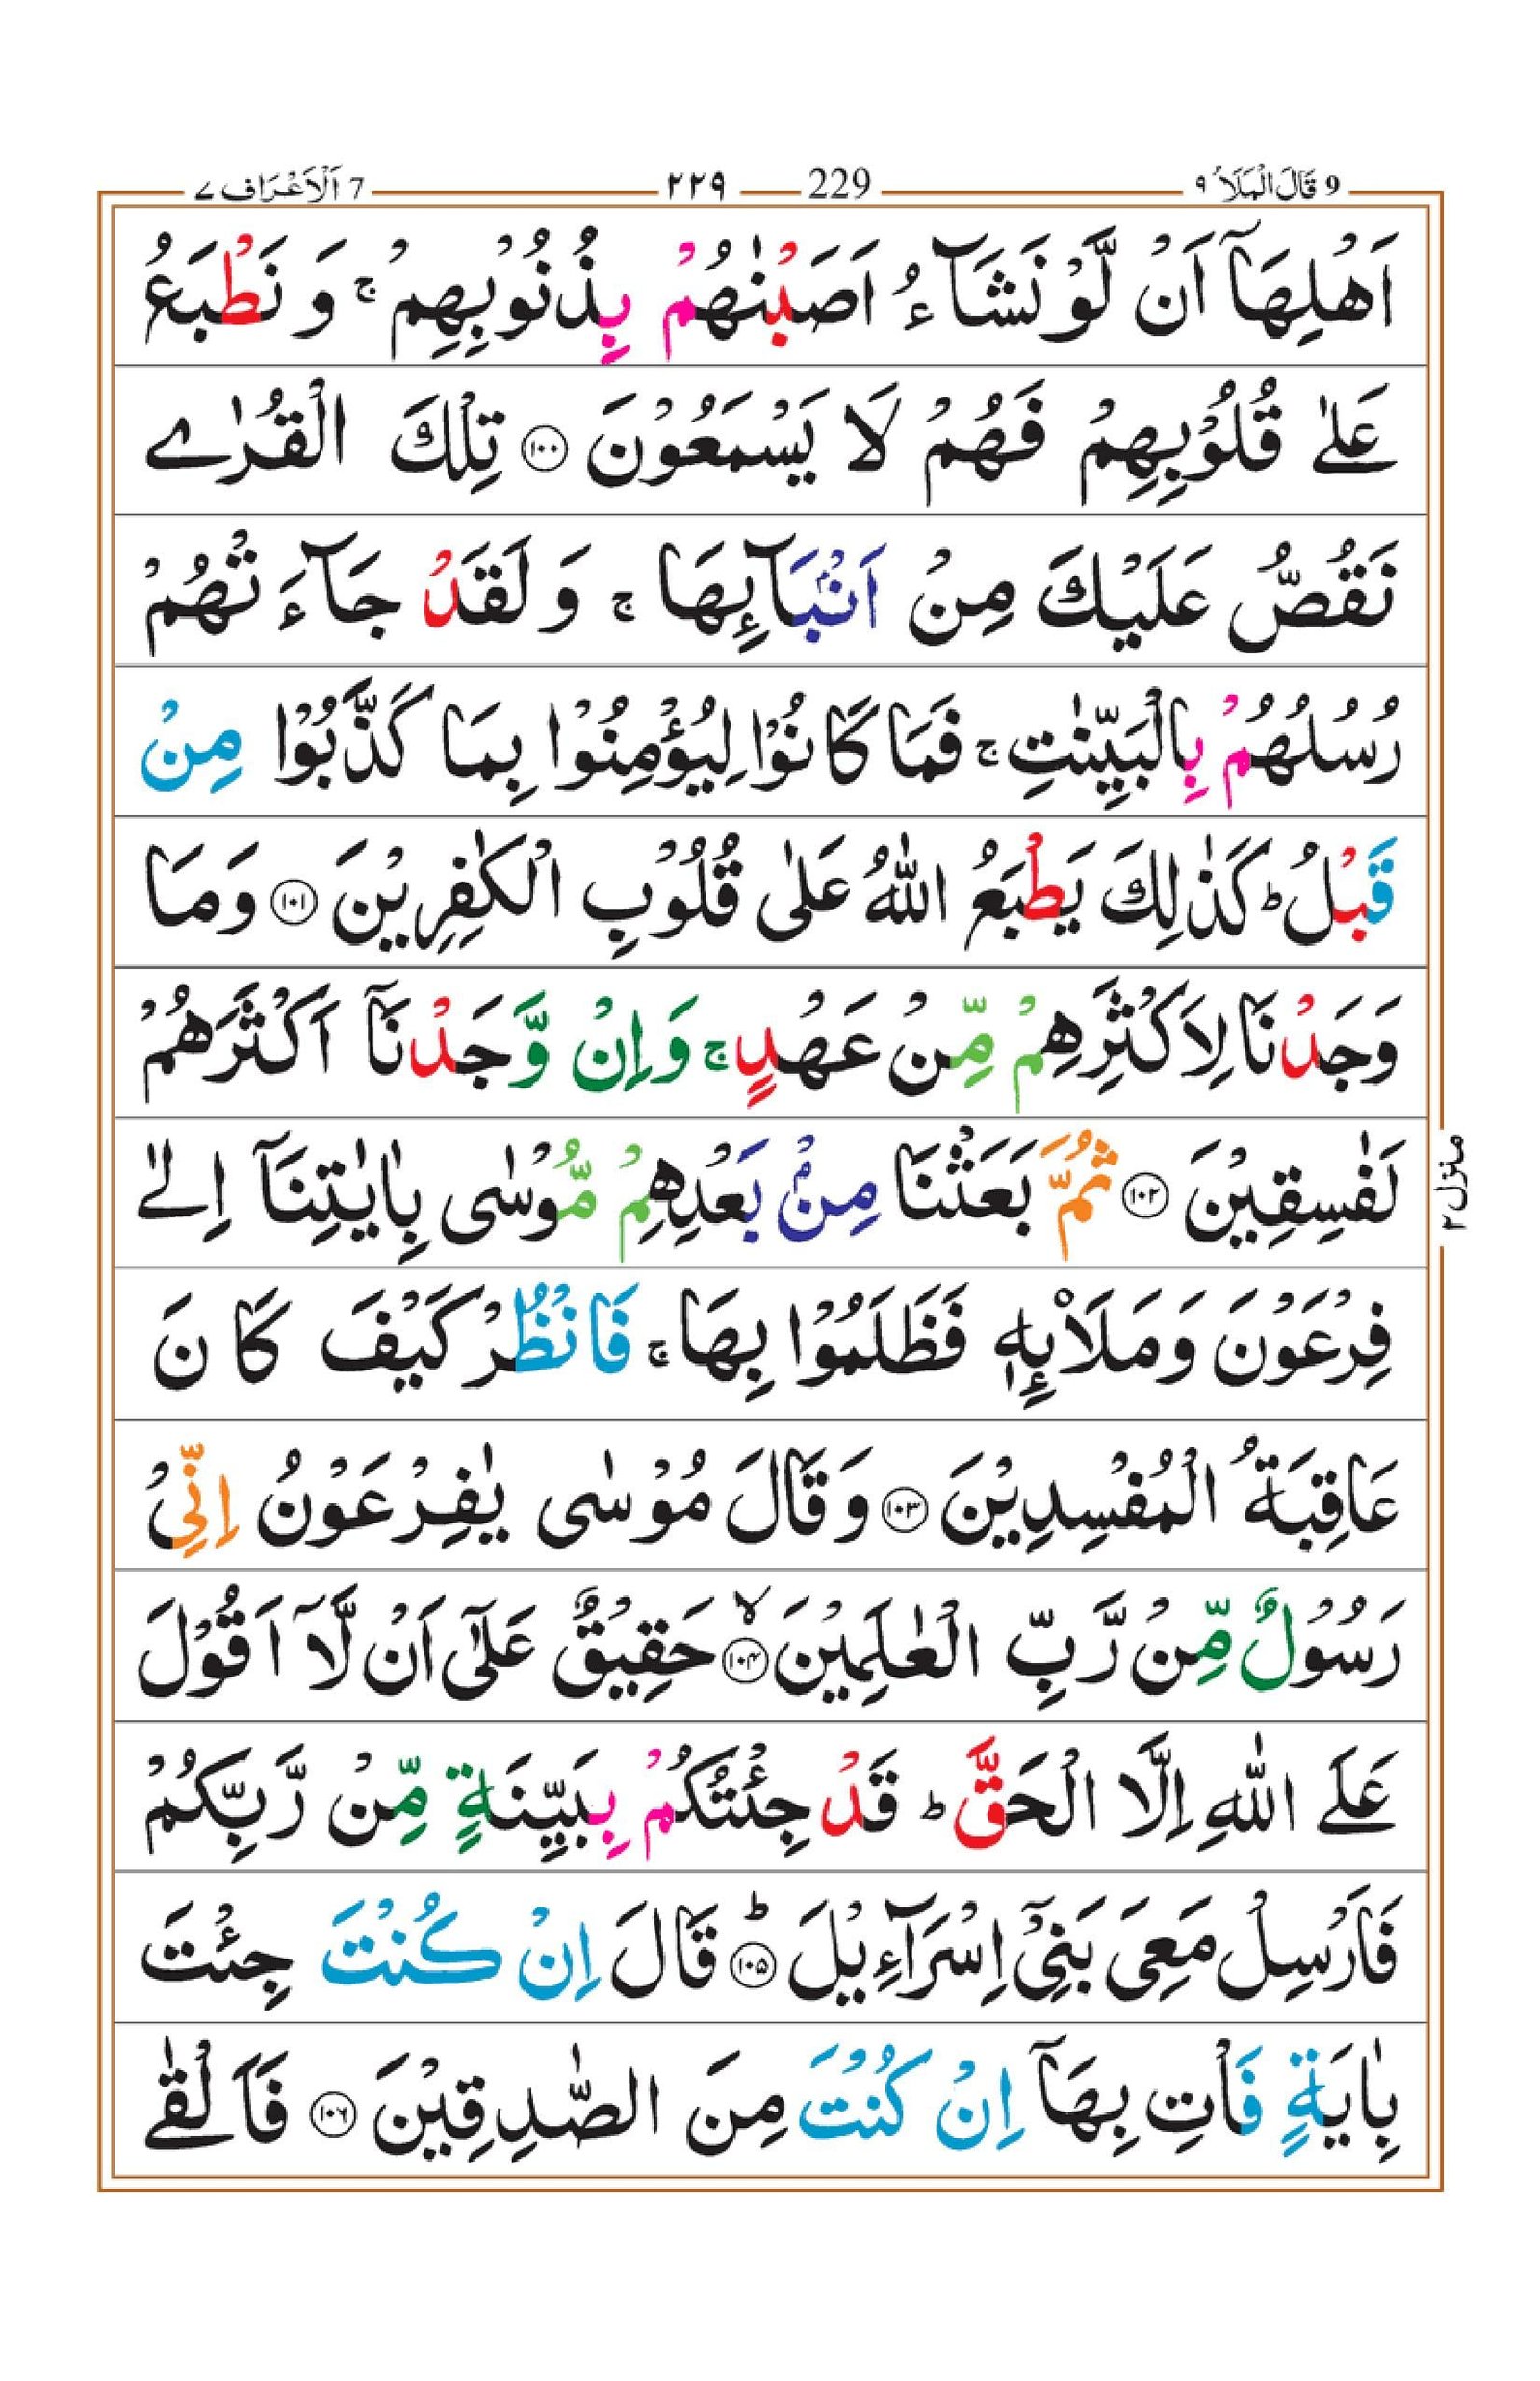 9 قَالَ الْمَلَاُ ٩ 229 ٢٢٩ 7 اَلْاَعْرَاف ٧
اَهْلِهَاۤ اَنْ لَّوْ نَشَآءُ اَصَبْنٰهُمْ بِذُنُوْبِهِمْ ۚ وَ نَطْبَعُ
عَلٰی قُلُوْبِهِمْ فَهُمْ لَا یَسْمَعُوْنَ ﴿۱۰۰﴾ تِلْكَ الْقُرٰی
نَقُصُّ عَلَیْكَ مِنْ اَنْۢبَآىِٕهَا ۚ وَ لَقَدْ جَآءَتْهُمْ
رُسُلُهُمْ بِالْبَیِّنٰتِ ۚ فَمَا كَانُوْا لِیُؤْمِنُوْا بِمَا كَذَّبُوْا مِنْ
قَبْلُ ؕ كَذٰلِكَ یَطْبَعُ اللّٰهُ عَلٰی قُلُوْبِ الْكٰفِرِیْنَ ﴿۱۰۱﴾ وَمَا
وَجَدْنَا لِاَكْثَرِهِمْ مِّنْ عَهْدٍ ۚ وَاِنْ وَّجَدْنَاۤ اَكْثَرَهُمْ
لَفٰسِقِیْنَ ﴿۱۰۲﴾ ثُمَّ بَعَثْنَا مِنْۢ بَعْدِهِمْ مُّوْسٰی بِاٰیٰتِنَاۤ اِلٰی
فِرْعَوْنَ وَمَلَا۠ىِٕهٖ فَظَلَمُوْا بِهَا ۚ فَانْظُرْ كَیْفَ كَانَ
عَاقِبَةُ الْمُفْسِدِیْنَ ﴿۱۰۳﴾ وَقَالَ مُوْسٰی یٰفِرْعَوْنُ اِنِّیْ
رَسُوْلٌ مِّنْ رَّبِّ الْعٰلَمِیْنَ ﴿۱۰۴﴾ۙ حَقِیْقٌ عَلٰۤی اَنْ لَّاۤ اَقُوْلَ
عَلَی اللّٰهِ اِلَّا الْحَقَّ ؕ قَدْ جِئْتُكُمْ بِبَیِّنَةٍ مِّنْ رَّبِّكُمْ
فَاَرْسِلْ مَعِیَ بَنِیْۤ اِسْرَآءِیْلَ ﴿۱۰۵﴾ؕ قَالَ اِنْ كُنْتَ جِئْتَ
بِاٰیَةٍ فَاْتِ بِهَاۤ اِنْ كُنْتَ مِنَ الصّٰدِقِیْنَ ﴿۱۰۶﴾ فَاَلْقٰی
منزل ٢